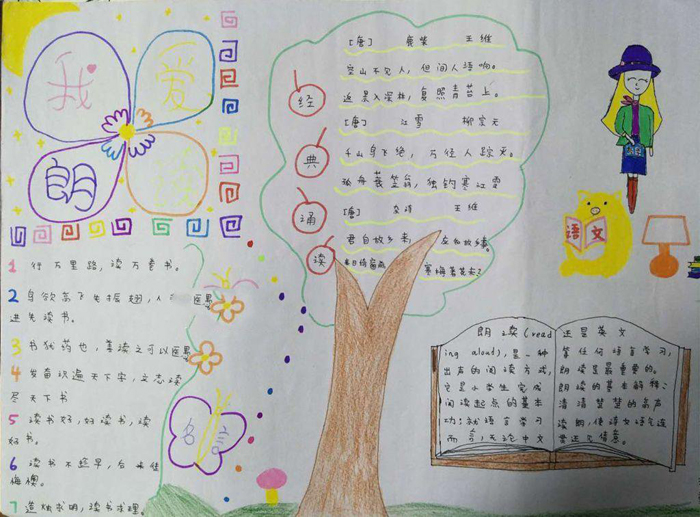 我爱
朗读
经典诵读
[唐] 鹿柴 王维
空山不见人，但闻人语响。
返景入深林，复照青苔上。
[唐] 江雪 柳宗元
千山鸟飞绝，万径人踪灭。
孤舟蓑笠翁，独钓寒江雪
[唐] 杂诗 王维
君自故乡来，应知故乡事。
来日绮窗前，寒梅著花未？
语文
1 行万里路，读万卷书。
2 鸟欲高飞先振翅，人
进先读书。
3 书犹药也，善读之可以医愚
4 发奋识遍天下字，立志读
尽天下书
5 读书好，好读书，读
好书。
6 读书不
悔
7 造烛求明，读书求理。
名言
朗读(read
ing aloud)，是一种
出声的阅读方式，
它是小学生完成
阅读起点的基本
功；就语言学习
而言，无论中文
还是英文
等任何语言学习，
朗读是最重要的。
朗读的基本解释：
清清楚楚的高声
读朗，使语文语定连